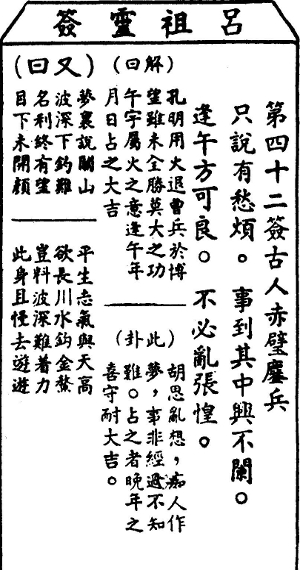 呂祖靈簽
第四十二簽古人赤壁鏖兵
只說有愁煩。事到其中興不闌。
逢午方可良。不必亂張惶。
(解曰)
孔明用火退曹兵於博
望雖未全勝莫大之功
午字屬火之意逢午年
月日占之大吉
(此卦)
胡思亂想，痴人作
夢，事非經過不知
難。占之者晚年之
喜守耐大吉。
(又曰)
夢裏說關山
波深下鈎難
名利終有望
目下未開顏
平生志氣與天高
欲長川水鈎金鰲
豈料波深難着力
此身且慢去遊遨